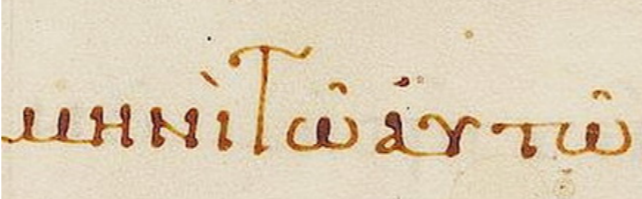 μηνὶ τῶ ἀυτῶ